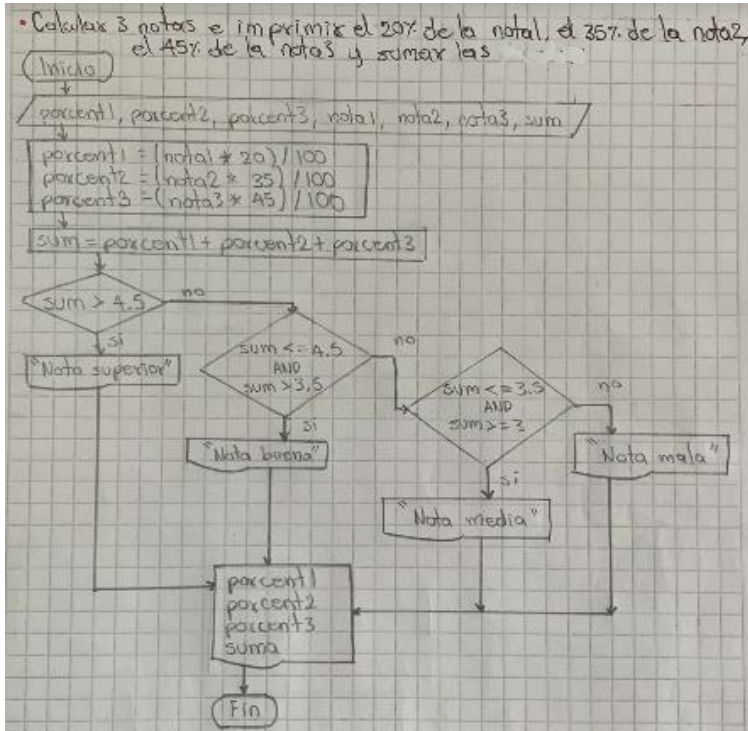 • Calcular 3 notas e imprimir el 20% de la nota1, el 35% de la nota2,
el 45% de la nota3 y sumar las
Inicio
porcent1, porcent2, porcent3, nota1, nota2, nota3, sum
porcent1 = (nota1 * 20) / 100
porcent2 = (nota2 * 35) / 100
porcent3 = (nota3 * 45) / 100
sum = porcent1 + porcent2 + porcent3
sum > 4.5
no
si
"Nota superior"
sum <= 4.5
AND
sum > 3.5
no
si
"Nota buena"
sum <= 3.5
AND
sum >= 3
no
si
"Nota mala"
"Nota media"
porcent1
porcent2
porcent3
suma
Fin